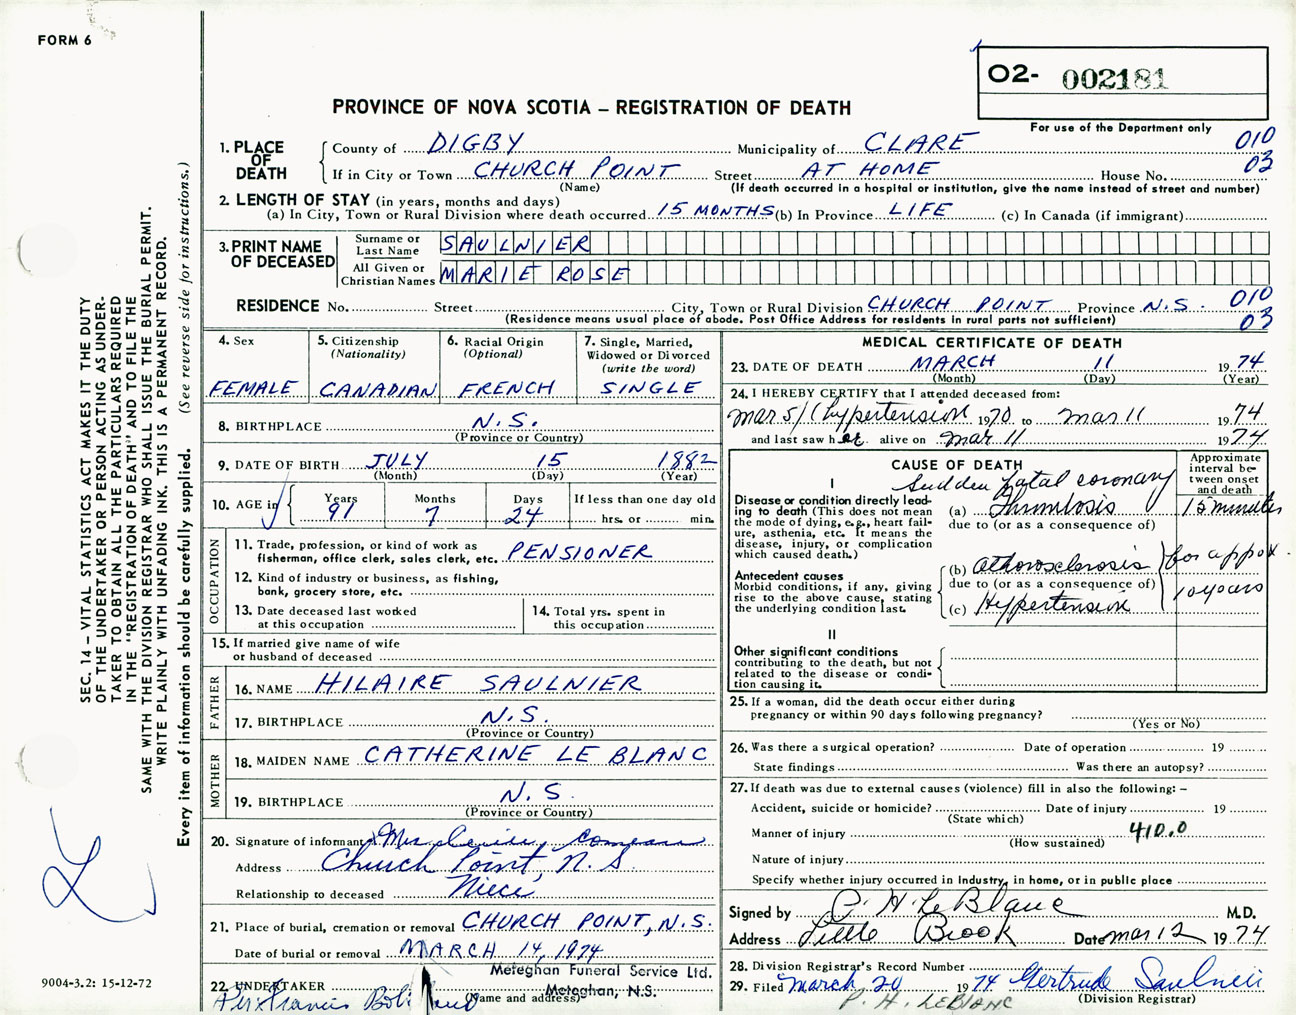 FORM 6
O2- 002181
PROVINCE OF NOVA SCOTIA – REGISTRATION OF DEATH
For use of the Department only
1. PLACE OF DEATH
County of DIGBY Municipality of CLARE 010
If in City or Town CHURCH POINT Street AT HOME House No. 03
(Name) (If death occurred in a hospital or institution, give the name instead of street and number)
2. LENGTH OF STAY (in years, months and days)
(a) In City, Town or Rural Division where death occurred 15 MONTHS (b) In Province LIFE (c) In Canada (if immigrant)
3. PRINT NAME OF DECEASED
Surname or Last Name SAULNIER
All Given or Christian Names MARIE ROSE
RESIDENCE No. Street City, Town or Rural Division CHURCH POINT Province N.S. 010
(Residence means usual place of abode. Post Office Address for residents in rural parts not sufficient) 03
4. Sex FEMALE
5. Citizenship (Nationality) CANADIAN
6. Racial Origin (Optional) FRENCH
7. Single, Married, Widowed or Divorced (write the word) SINGLE
8. BIRTHPLACE N.S.
(Province or Country)
9. DATE OF BIRTH JULY 15 1882
(Month) (Day) (Year)
10. AGE in Years 91 Months 7 Days 24 If less than one day old
hrs. or min.
OCCUPATION
11. Trade, profession, or kind of work as fisherman, office clerk, sales clerk, etc. PENSIONER
12. Kind of industry or business, as fishing, bank, grocery store, etc.
13. Date deceased last worked at this occupation
14. Total yrs. spent in this occupation
15. If married give name of wife or husband of deceased
FATHER
16. NAME HILAIRE SAULNIER
17. BIRTHPLACE N.S.
(Province or Country)
MOTHER
18. MAIDEN NAME CATHERINE LE BLANC
19. BIRTHPLACE N.S.
(Province or Country)
20. Signature of informant Mrs Comeau
Address Church Point, N.S.
Relationship to deceased Niece
21. Place of burial, cremation or removal CHURCH POINT, N.S.
Date of burial or removal MARCH 14, 1974
22. UNDERTAKER Meteghan Funeral Service Ltd.
(Name and address) Meteghan, N.S.
MEDICAL CERTIFICATE OF DEATH
23. DATE OF DEATH MARCH 11 1974
(Month) (Day) (Year)
24. I HEREBY CERTIFY that I attended deceased from:
Mar 5/ (hypertension 1970 to mar 11 1974
and last saw her alive on mar 11 1974
CAUSE OF DEATH
Approximate interval between onset and death
I
Disease or condition directly leading to death (This does not mean the mode of dying, e.g., heart failure, asthenia, etc. It means the disease, injury, or complication which caused death.)
(a) Sudden fatal coronary thrombosis 15 minutes
due to (or as a consequence of)
Antecedent causes
Morbid conditions, if any, giving rise to the above cause, stating the underlying condition last.
(b) atherosclerosis for approx.
due to (or as a consequence of)
(c) Hypertension 10 years
II
Other significant conditions
contributing to the death, but not related to the disease or condition causing it.
25. If a woman, did the death occur either during pregnancy or within 90 days following pregnancy?
(Yes or No)
26. Was there a surgical operation? Date of operation 19
State findings Was there an autopsy?
27. If death was due to external causes (violence) fill in also the following: –
Accident, suicide or homicide? Date of injury 19
(State which)
Manner of injury 410.0
(How sustained)
Nature of injury
Specify whether injury occurred in Industry, in home, or in public place
Signed by P. H. LeBlanc M.D.
Address Little Brook Date mar 12 1974
28. Division Registrar's Record Number
29. Filed March 20 1974 Gertrude Saulnier
(Division Registrar)
P. H. LEBLANC
SEC. 14 – VITAL STATISTICS ACT MAKES IT THE DUTY
OF THE UNDERTAKER OR PERSON ACTING AS UNDER-
TAKER TO OBTAIN ALL THE PARTICULARS REQUIRED
IN THE "REGISTRATION OF DEATH" AND TO FILE THE
SAME WITH THE DIVISION REGISTRAR WHO SHALL ISSUE THE BURIAL PERMIT.
WRITE PLAINLY WITH UNFADING INK. THIS IS A PERMANENT RECORD.
Every item of information should be carefully supplied. (See reverse side for instructions.)
9004-3.2: 15-12-72